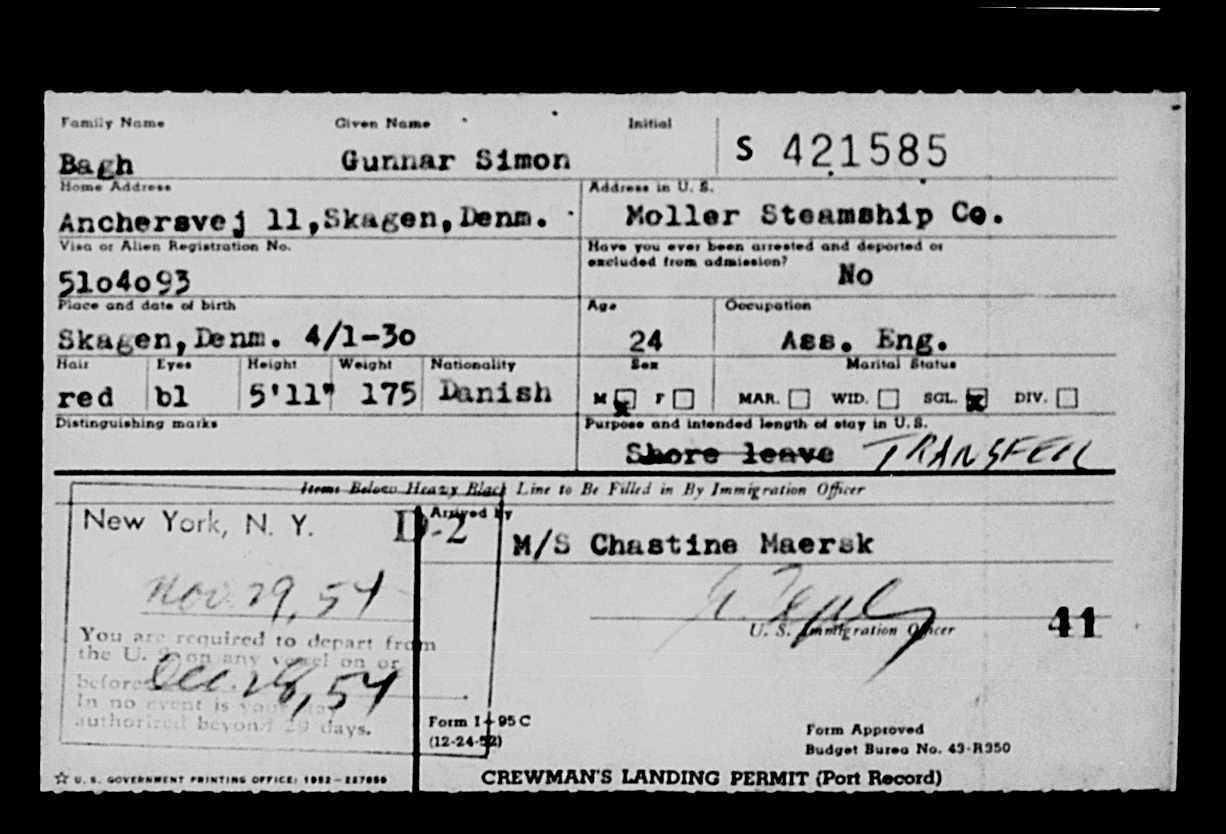 Family Name Given Name Initial
Bagh Gunnar Simon S 421585
Home Address Address in U. S.
Anchersvej 11,Skagen,Denm. Moller Steamship Co.
Visa or Alien Registration No. Have you ever been arrested and deported or
excluded from admission?
51o4o93 No
Place and date of birth Age Occupation
Skagen,Denm. 4/1-3o 24 Ass. Eng.
Hair Eyes Height Weight Nationality Sex Marital Status
red bl 5'11" 175 Danish M F MAR. WID. SGL. DIV.
Distinguishing marks Purpose and intended length of stay in U. S.
Shore leave TRANSFER
Items Below Heavy Black Line to Be Filled in By Immigration Officer
New York, N. Y. D-2 Arrived by
M/S Chastine Maersk
Nov. 29, 54
U. S. Immigration Officer 41
You are required to depart from
the U. S. on any vessel on or
before Dec. 28, 54
In no event is your stay
authorized beyond 29 days.
Form I-95 C
(12-24-52)
Form Approved
Budget Bureau No. 43-R350
☆ U. S. GOVERNMENT PRINTING OFFICE: 1952—227050
CREWMAN'S LANDING PERMIT (Port Record)